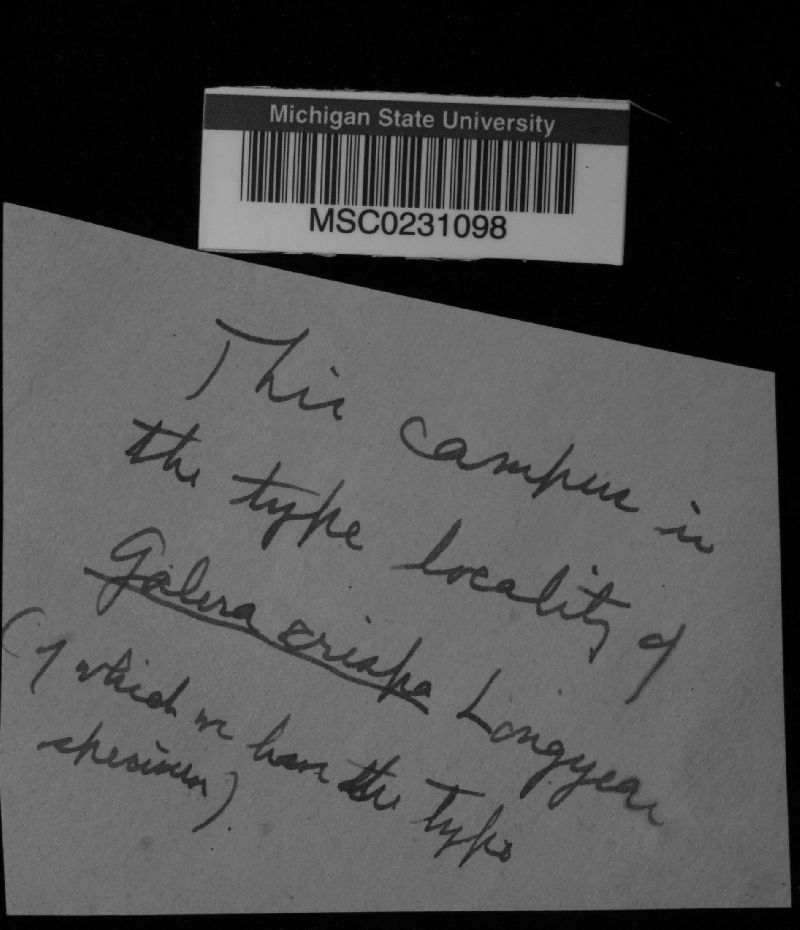 Michigan State University
MSC0231098
This campus is
the type locality of
Galera crispa Longyear
(of which we have the type
specimen)